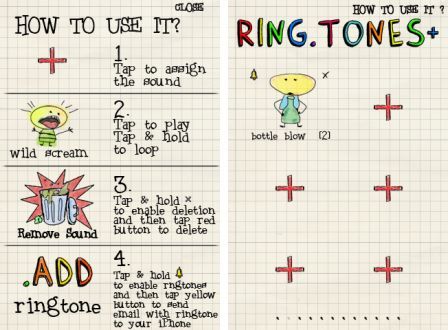 CLOSE
HOW TO USE IT?
1.
Tap to assign
the sound
wild scream
2.
Tap to play
Tap & hold
to loop
Remove Sound
3.
Tap & hold x
to enable deletion
and then tap red
button to delete
.ADD
ringtone
4.
Tap & hold
to enable rngtones
and then tap yellow
button to send
email with ringtone
to your iPhone
HOW TO USE IT ?
RING.TONES+
bottle blow [2]